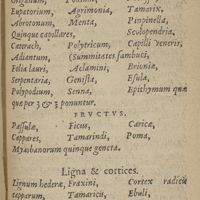 Eupatorium, Agrimonia, Tamarix,
Abrotonum, Menta, Pinpinella,
Quinque capollares, Scolopendria,
Caterach, Polytricum, Capilli Veneris,
Adiantum, (Summitates sambuci,
Folia lauri, Aclamini, Brioniæ,
Serpentaria, Gensta, Esula,
Polypodium, Senna, Epithymum quæ
quæ per 3 & 3 ponuntur.
FRVCTVS.
Passulæ, Ficus, Caricæ,
Cappares, Tamarindi, Poma,
Myrobanorum quinque genera.
Ligna & cortices.
Lignum hederæ, Fraxini, Cortex radicis
capparum, Tamaricis, Ebuli,